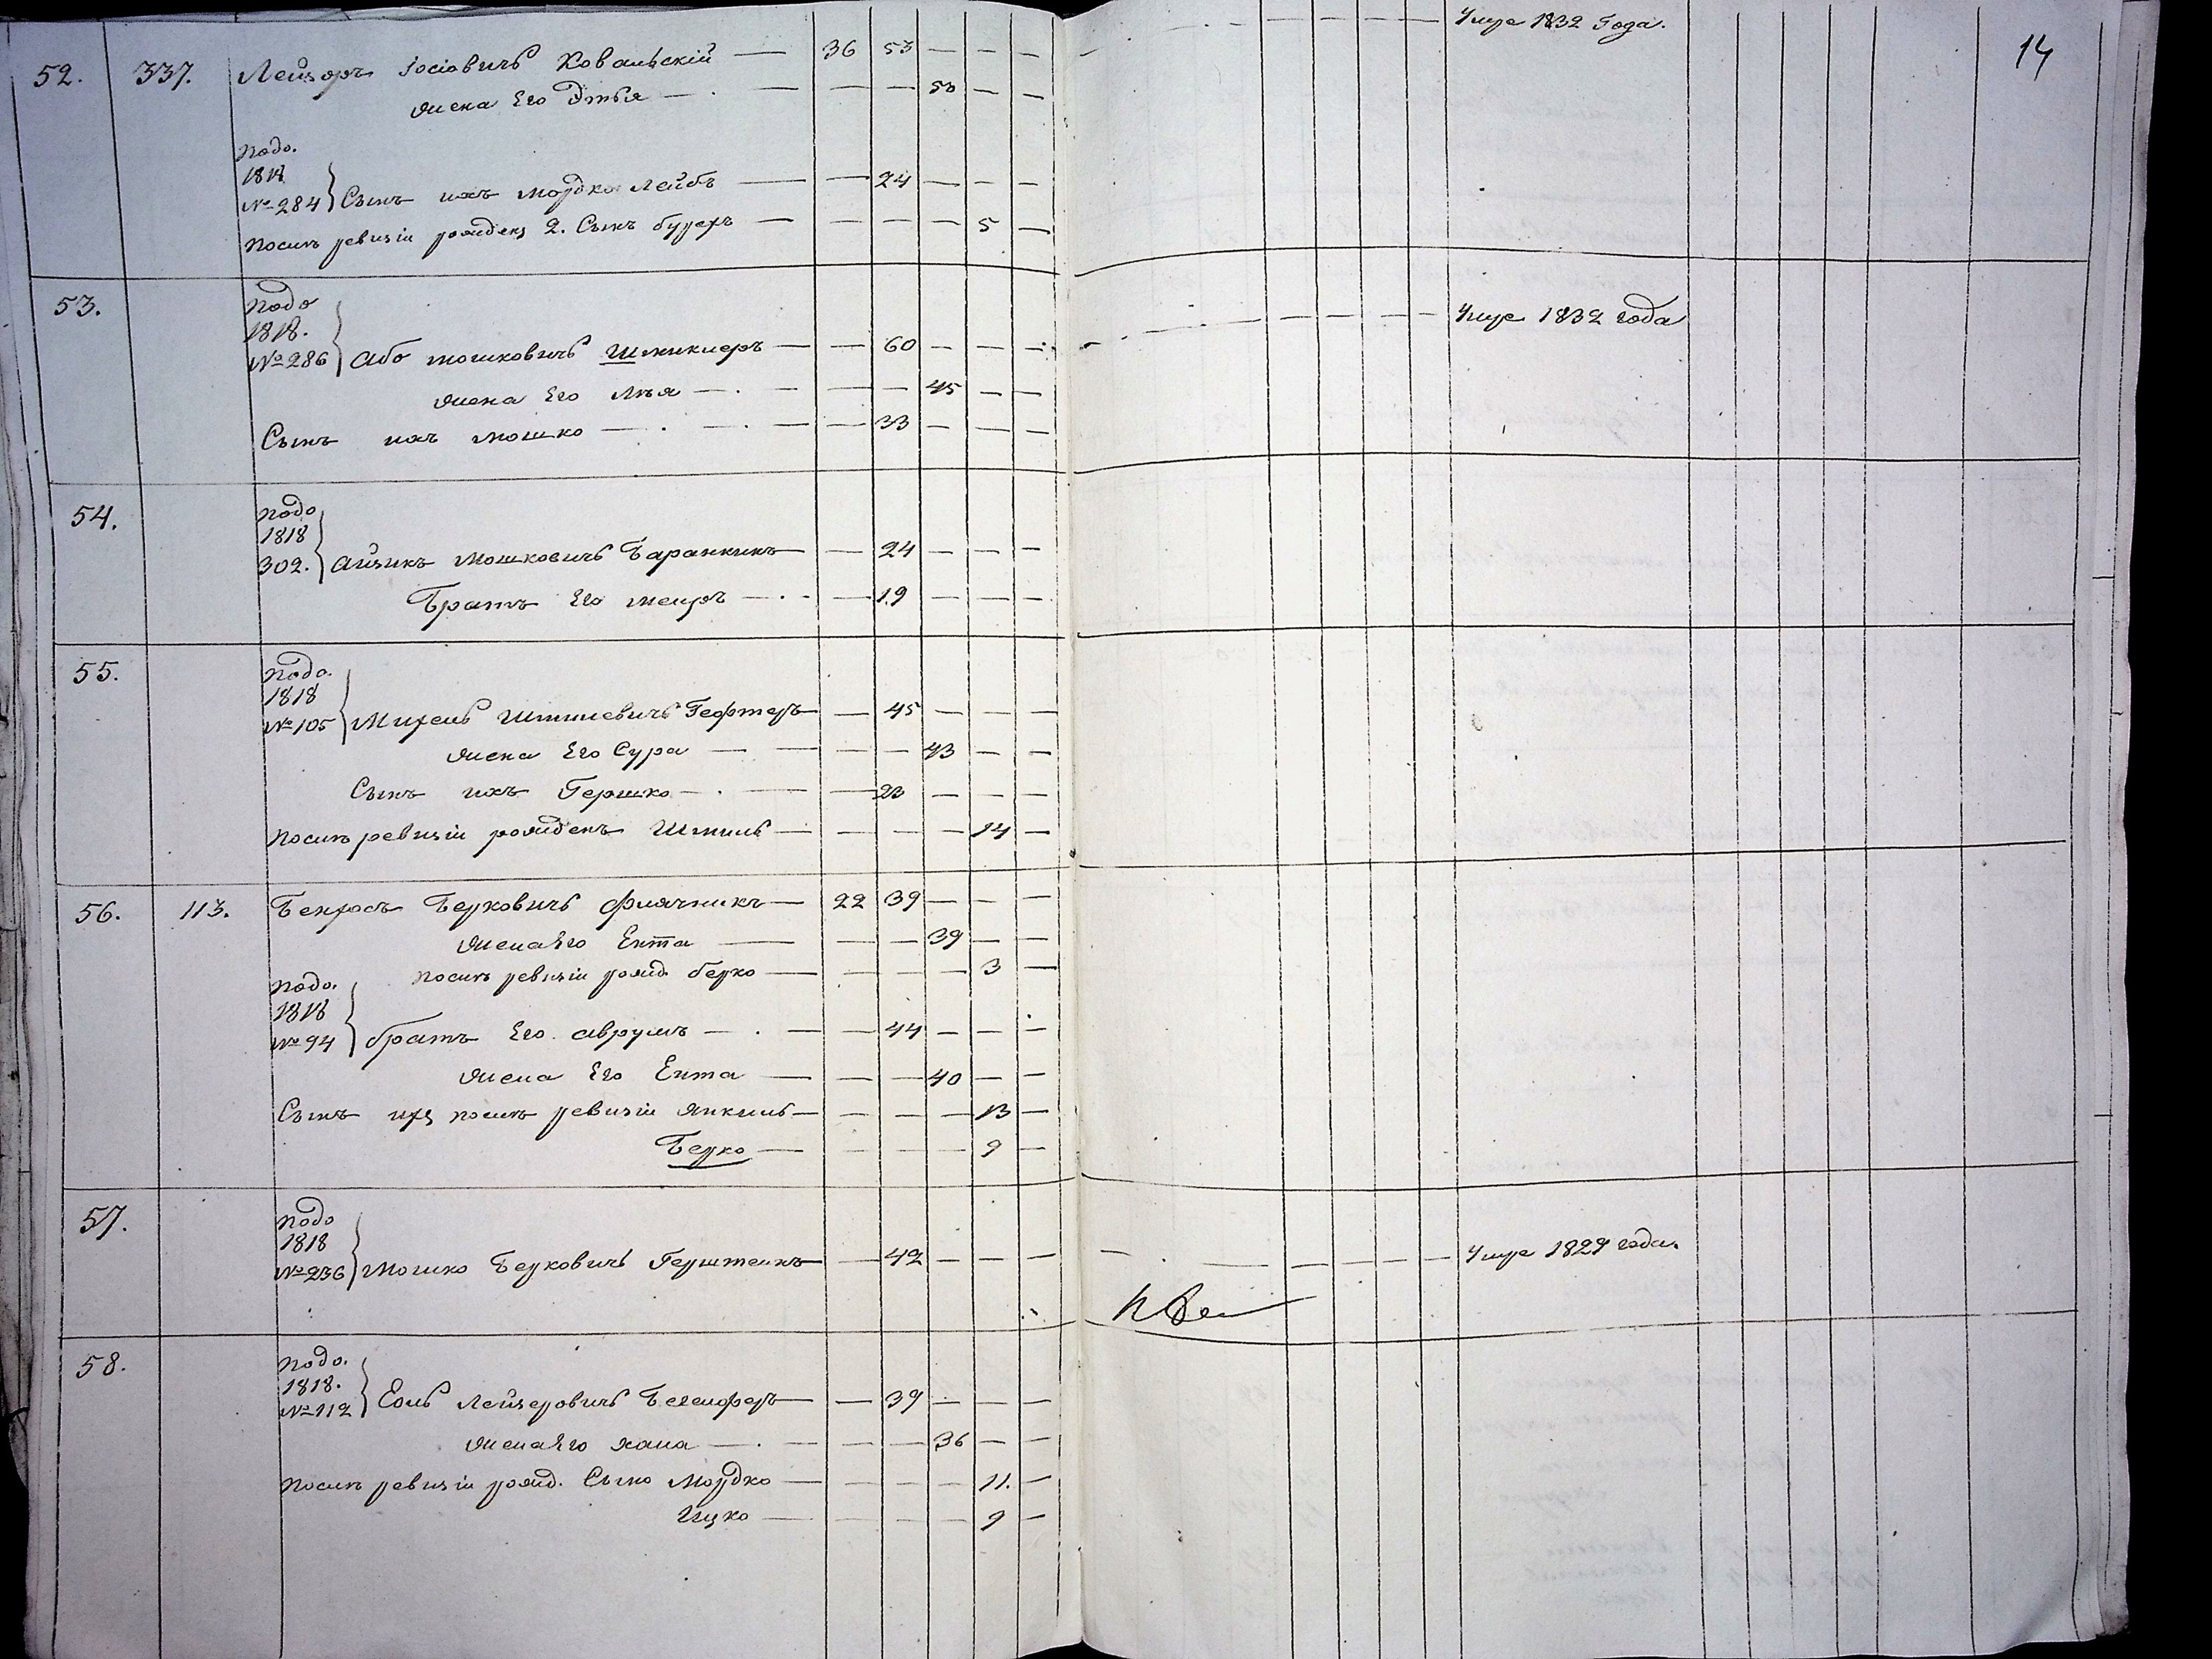 Умре 1832 Года.
14
52. 337. Лейзоръ Іосіовичъ Ковальскій — 36 53 — — —
жена Его Этья — — — 50 — —
подо.
1818
№ 284 } Сынъ ихъ Мордко Лейбъ — — 24 — — —
послѣ ревизіи рожденъ 2. Сынъ — — — — 5 —
53. подо
1818.
№ 286 } Або Мошковичъ — — 60 — — — Умре 1832 года
жена Его Лея — — — 45 — —
Сынъ ихъ Мошко — — 33 — — —
54. подо
1818
302. } Айзикъ Мошковичъ Баранкинъ — — 24 — — —
Братъ Его Меиръ — — 19 — — —
55. подо.
1818
№ 105 } Михель Шмилевичъ Гефтеръ — — 45 — — —
жена Его Сура — — — 43 — —
Сынъ ихъ Гершко — — 23 — — —
послѣ ревизіи рожденъ Шмиль — — — — 14 —
56. 113. Берковичъ Флячникъ — 22 39 — — —
жена Его Ента — — — 39 — —
послѣ ревизіи рожд. берко — — — — 3 —
подо.
1818
№ 94 } братъ Его Аврумъ — — 44 — — —
жена Его Ента — — — 40 — —
Сынъ ихъ послѣ ревизіи Янкель — — — — 13 —
Берко — — — — 9 —
57. подо
1818
№ 236 } Мошко Берковичъ Герштеинъ — — 42 — — — Умре 1829 года.
58. подо.
1818.
№ 112 } Лейзеровичъ — — 39 — — —
жена Его хана — — — 36 — —
послѣ ревизіи рожд. Сыно Мордко — — — — 11. —
Ицко — — — — 9 —